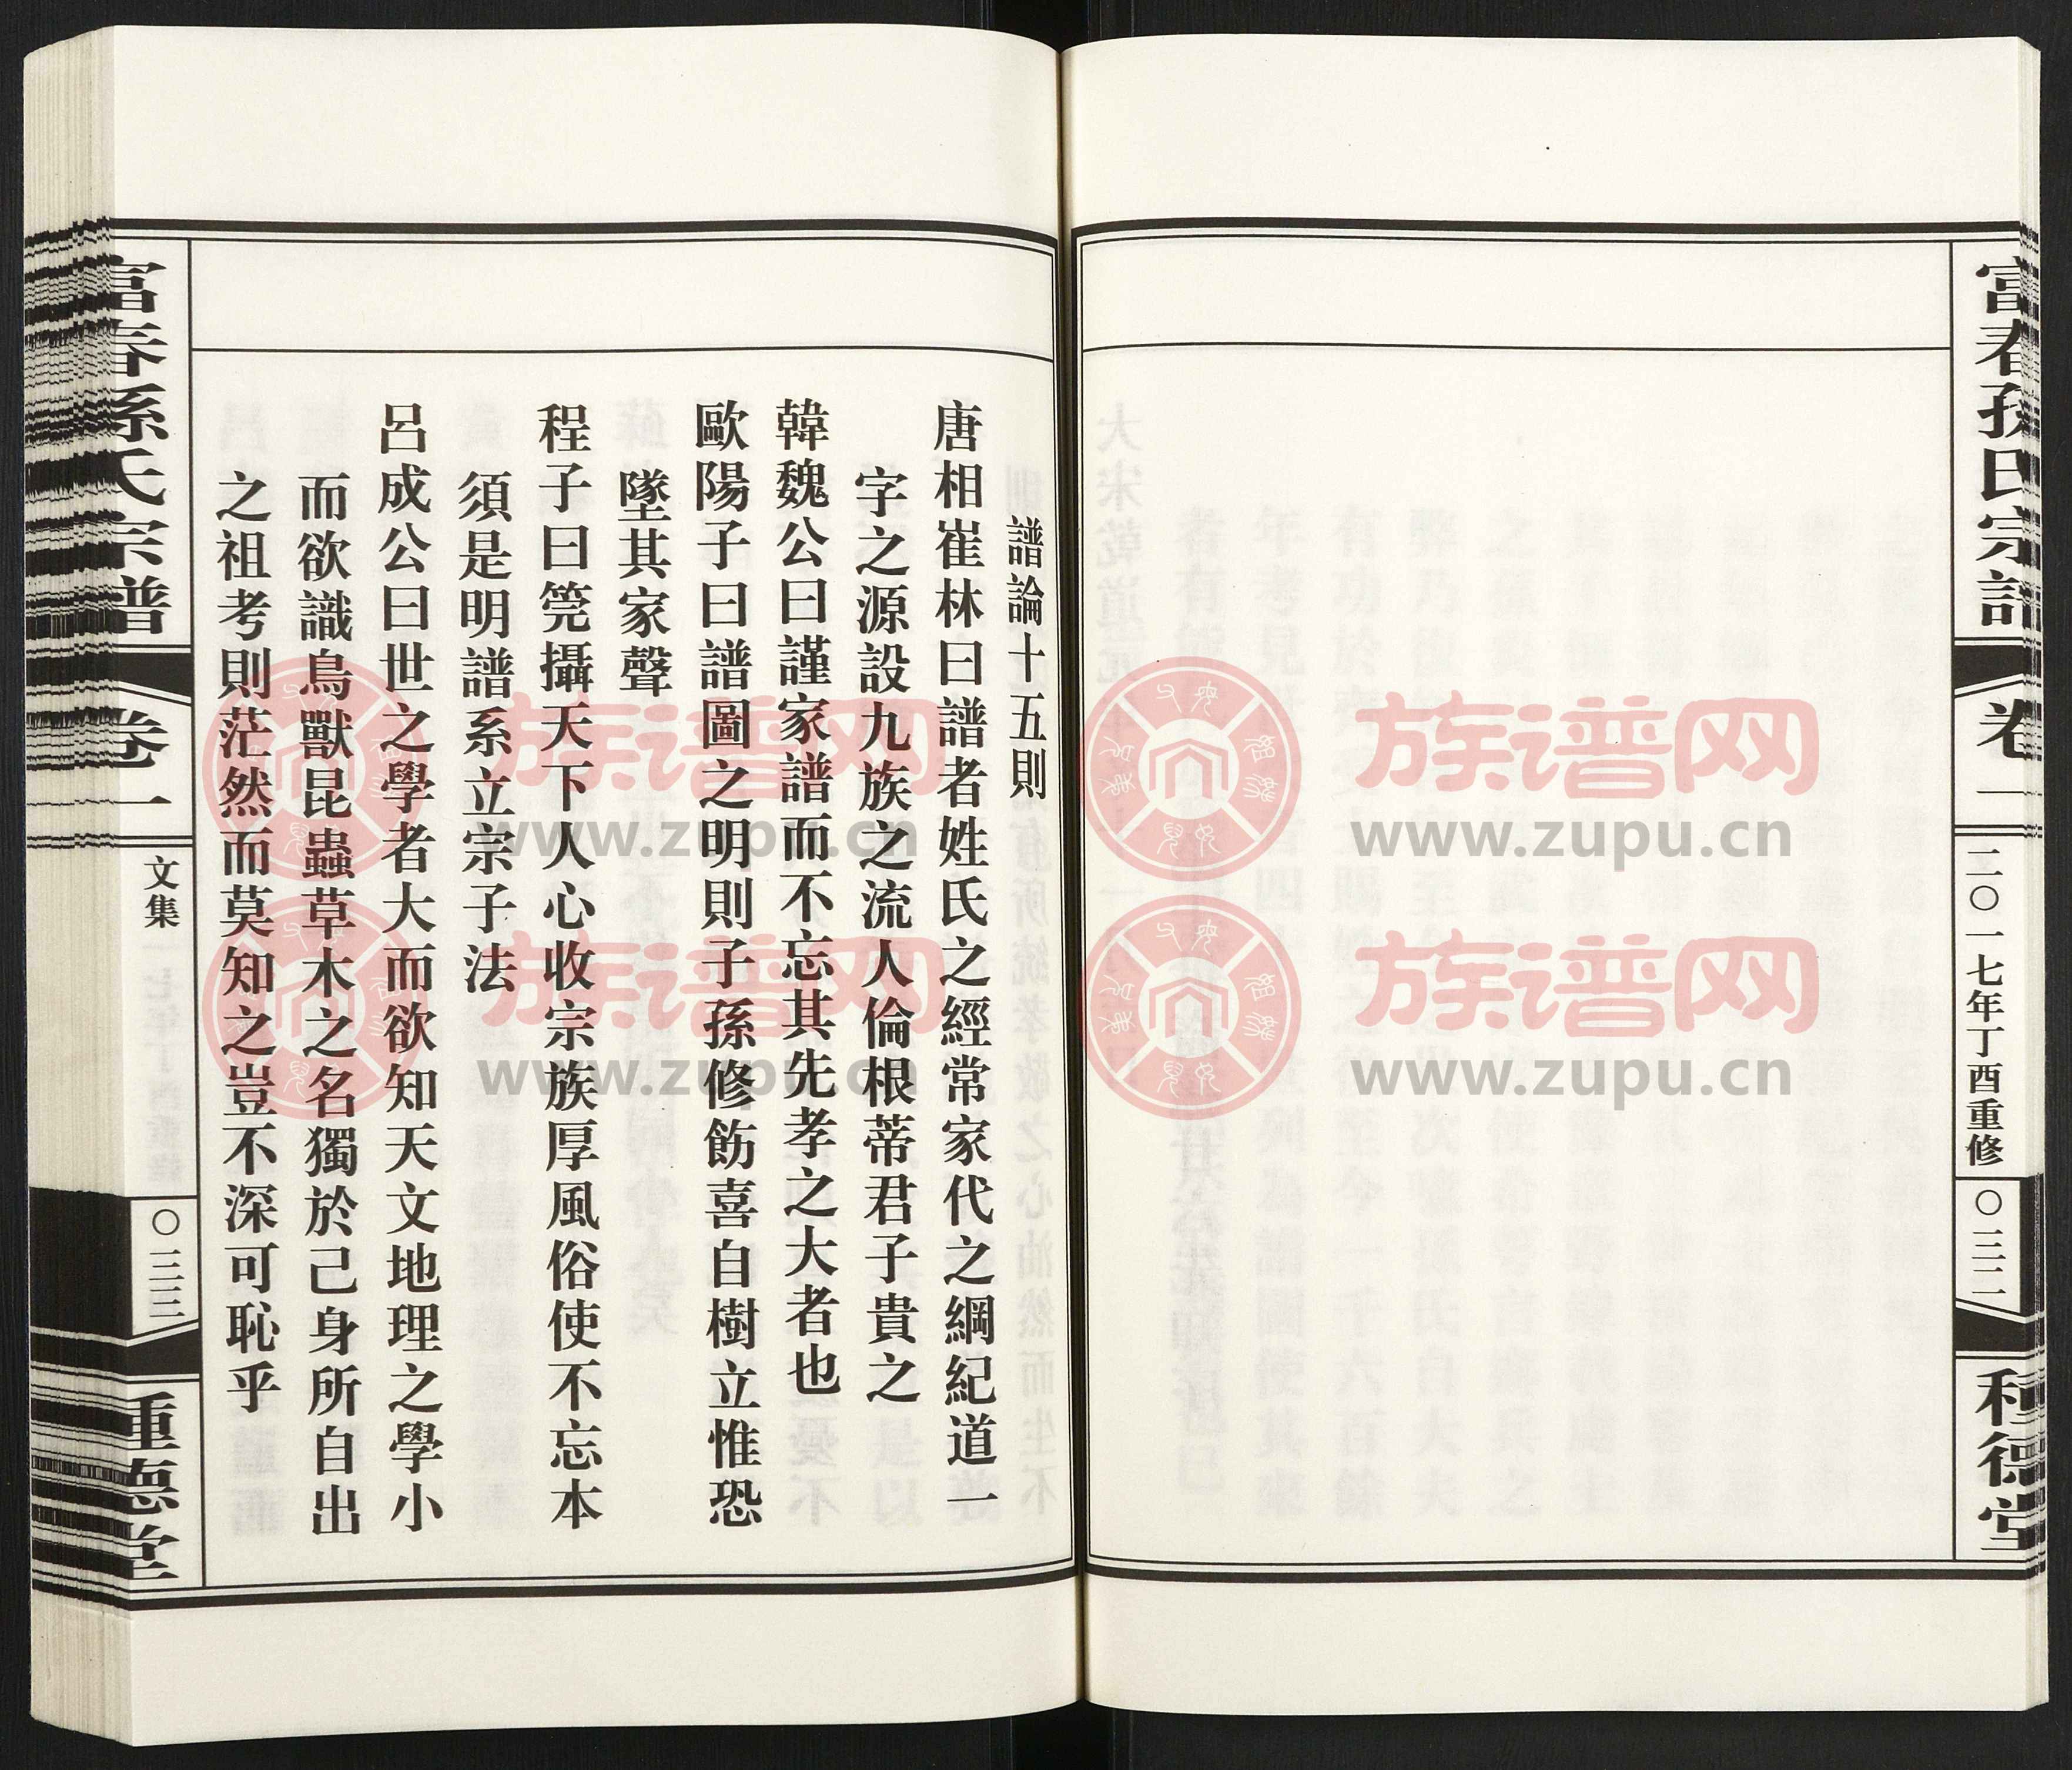 富春孫氏宗譜
卷一
二〇一七年丁酉重修
〇三二
種德堂
譜論十五則
唐相崔林曰譜者姓氏之經常家代之綱紀道一
字之源設九族之流人倫根蒂君子貴之
韓魏公曰謹家譜而不忘其先孝之大者也
歐陽子曰譜圖之明則子孫修飭喜自樹立惟恐
墜其家聲
程子曰筦攝天下人心收宗族厚風俗使不忘本
須是明譜系立宗子法
呂成公曰世之學者大而欲知天文地理之學小
而欲識鳥獸昆蟲草木之名獨於己身所自出
之祖考則茫然而莫知之豈不深可恥乎
富春孫氏宗譜
卷一
文集
〇三三
種德堂
族谱网
www.zupu.cn
族谱网
www.zupu.cn
族谱网
www.zupu.cn
族谱网
www.zupu.cn